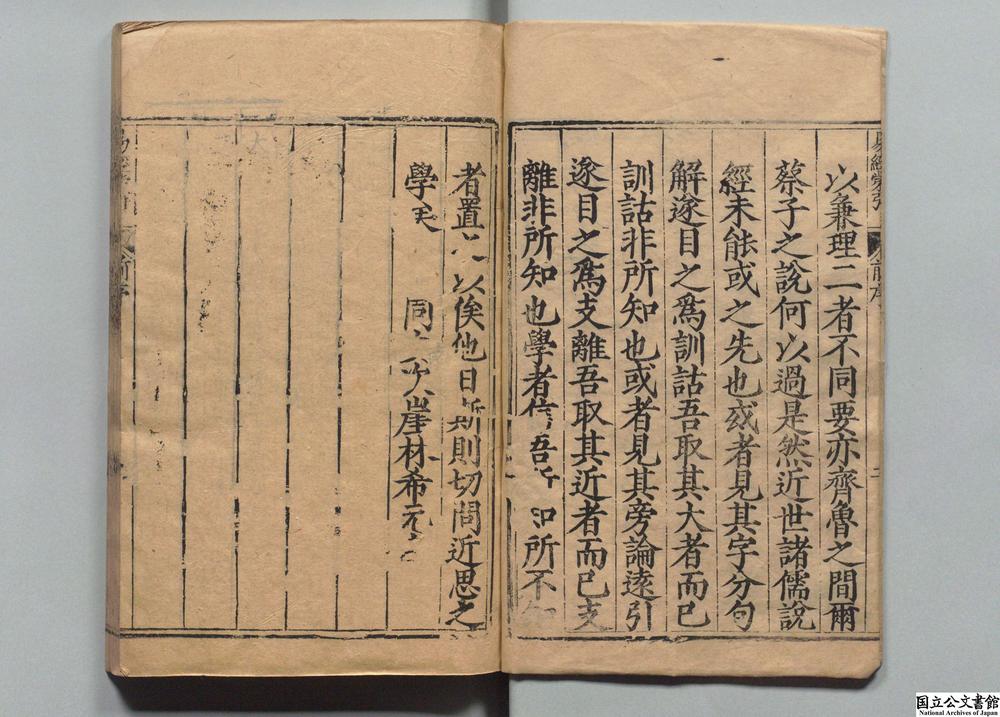 易經蒙引
前序
二
以兼理二者不同要亦齊魯之間爾
蔡子之說何以過是然近世諸儒說
經未能或之先也或者見其字分句
解遂目之為訓詁吾取其大者而已
訓詁非所知也或者見其旁論遠引
遂目之為支離吾取其近者而已支
離非所知也學者 吾 所不
者置 以俟他日斯則切問近思之
學矣
同 崖林希元
国立公文書館
National Archives of Japan